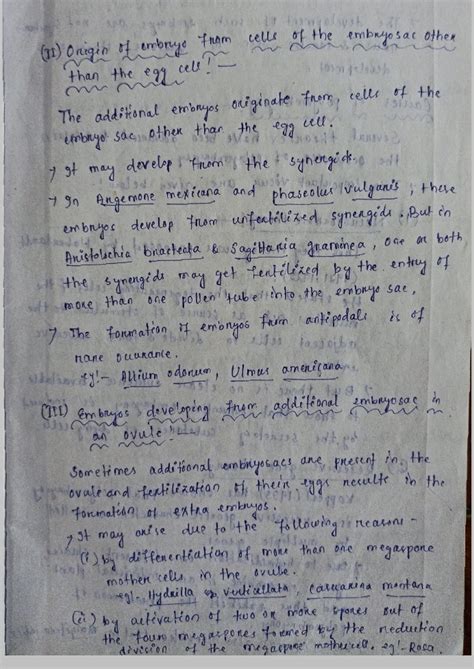 (II) Origin of embryo from cells of the embryosac other
than the egg cell! —
The additional embryos originate from, cells of the
embryo sac other than the egg cell.
→ It may develop from the synergids.
→ In Angemone mexicana and phaseolus vulganis, these
embryos develop from unfertilized synergids. But in
Anistolochia bnacteata & Sagittania gnaminea, one or both
the synergids may get fertilized by the entry of
more than one pollen tube into the embryo sac.
→ The formation if embryos from antipodals is of
rane ouuranie.
eg! - Allium odonum, Ulmus amenicana
(III) Embryos developing from additional embryosac in
an ovule! -
Sometimes additional embryosacs are present in the
ovule and fertilization of their eggs results in the
formation of extra embryos.
→ It may arise due to the following reasons -
(i) by differentiation of more than one megaspore
mother cells in the ovule.
eg! - Hydrilla verticillata, casuarina montana
(ii) by activation of two or more spores out of
the four megaspores formed by the reduction
division of the megaspore mothercell. eg! - Rosa.